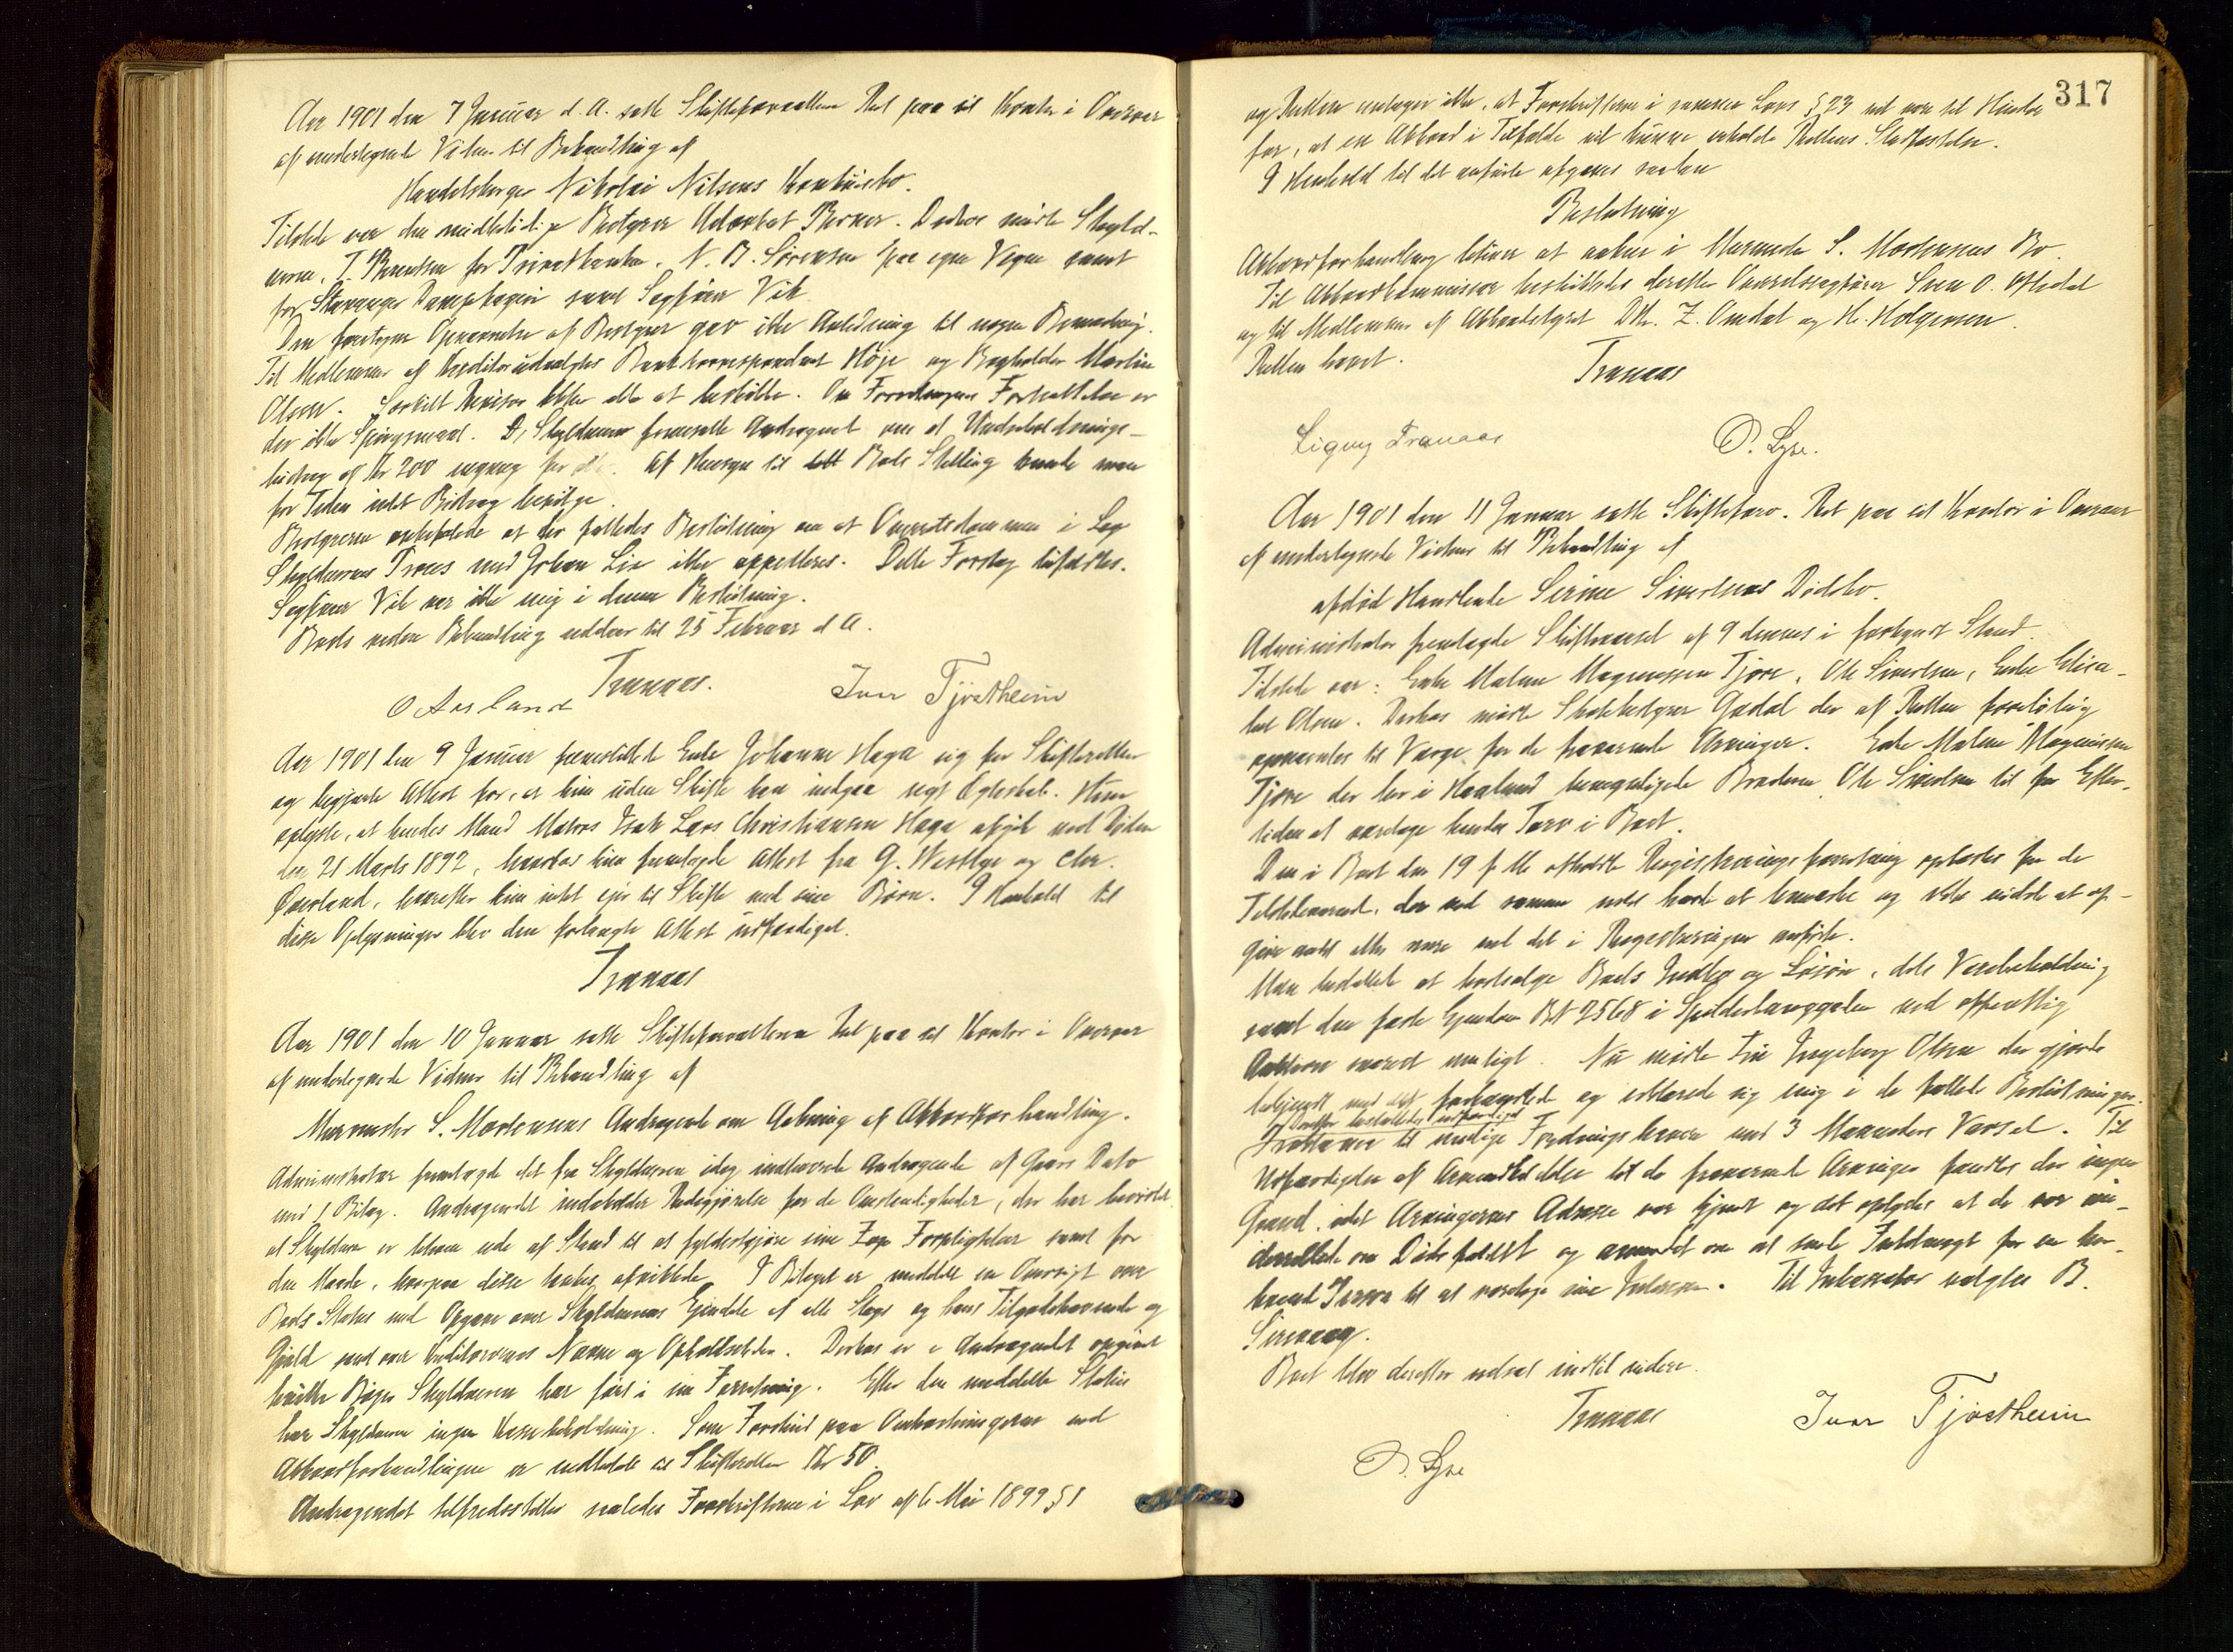 Aar 1901 den 7 Januar d. A. satte Skifteforvalteren Ret paa sit Kontor i Overvær
af undertegnede Vidner til Behandling af
Handelsborger Nikolai Nilsens Konkursbo.
Tilstede var den midlertidige Bestyrer Advokat Berner. Derhos mødte Skyld-
neren, T. Berentsen for Privatbanken, N. B. Sørensen paa egne Vegne samt
for Stavanger Dampbageri samt Sagfører Vik.
Den foretagne Opnævnelse af Bestyrer gav ikke Anledning til nogen Bemærkning.
Til Medlemmer af Kreditorudvalgtes Bankkorrespondent Høje og Bogholder Martin
Olsen. Særskilt Revisor ikke at beskikke. Om Forretningens Fortsættelse er
der ikke Spørgsmaal. Skyldneren fremsatte Andragende om et Underholdnings-
bidrag af Kr 200 engang for alle. Af Hensyn til Boets Stilling kunde man
for Tiden intet Bidrag bevilge.
Bestyreren anbefalede at der fattedes Beslutning om at Overretsdommen i Sag
Skyldnerens Proces med Johan Lie ikke appelleres. Dette Forslag tiltraadtes.
Sagfører Vik var ikke enig i denne Beslutning.
Boets videre Behandling udsættes til 25 Februar d A.
Tranaas.
O Aarland Ivar Tjøstheim
Aar 1901 den 9 Januar fremstillede Enke Johanne Haga sig for Skifteretten
og begjærte Attest for, at hun uden Skifte kan indgaa nyt Ægteskab. Hun
oplyste, at hendes Mand Matros Isak Lars Christiansen Haga afgik ved Døden
den 21 Marts 1892, hvorhos hun fremlagde Attest fra G. Westlye og Chr.
Øverland, hvorefter hun intet ejer til Skifte med sine Børn. I Henhold til
disse Oplysninger blev den forlangte Attest udfærdiget.
Tranaas
Aar 1901 den 10 Januar satte Skifteforvalteren Ret paa sit Kontor i Overvær
af undertegnede Vidner til Behandling af
Murmester S. Mortensens Andragende om Aabning af Akkordforhandling.
Administrator fremlagde det fra Skyldneren idag indleverede Andragende af Gaars Dato
med 1 Bilag. Andragendet indeholder Redegjørelse for de Omstændigheder, der har bevirket
at Skyldneren er bleven ude af Stand til at fyldestgjøre sine Forpligtelser samt for
den Maade, hvorpaa disse tænkes afviklede. I Bilaget er meddelt en Oversigt over
Boets Status med Opgave over Skyldnerens Eiendele af alle Slags og hans Tilgodehavende og
Gjæld samt over Kreditorernes Navne og Opholdssteder. Derhos er i Andragendet opgivet
hvilke Bøger Skyldneren har ført i sin Forretning. Efter den meddelte Status
har Skyldneren ingen Kassebeholdning. Som Forskud paa Omkostningerne ved
Akkordforhandlingen er indbetalt til Skifteretten Kr 50.
Andragendet tilfredsstiller saaledes Forskrifterne i Lov af 6 Mai 1899 § 1
317
og Retten antager ikke, at Forskrifterne i samme Lovs § 23 vil være til Hinder
for, at en Akkord i Tilfælde vil kunne erholde Rettens Stadfæstelse.
I Henhold til det anførte afgaves saadan
Beslutning
Akkordforhandling bliver at aabne i Murmester S. Mortensens Bo.
Til Akkordkommissær beskikkedes derefter Overretssagfører Sven O. Oftedal
og til Medlemmer af Akkordstyret DHr. Z. Omdal og H. Holgersen.
Retten hævet.
Tranaas
Signy Tranaas P. Lyse.
Aar 1901 den 11 Januar satte Skifteforv. Ret paa sit Kontor i Overvær
af undertegnede Vidner til Behandling af
afdød Handlende Serine Sivertsens Dødsbo.
Administrator fremlagde Skiftevarsel af 9 dennes i forkyndt Stand.
Tilstede var: Enke Malene Magnussen Tjore, Ole Sivertsen, Enke Elisa-
bet Olsen. Derhos mødte Skattebestyrer Gadal der af Retten foreløbig
opnævntes til Værge for de fraværende Arvinger. Enke Malene Magnussen
Tjore der bor i Haaland bemyndigede Broderen Ole Sivertsen til for Efter-
tiden at varetage hendes Tarv i Boet.
Den i Boet den 19 f. M. afholdte Registreringsforretning oplæstes for de
Tilstedeværende, der ved samme intet havde at bemærke og ikke vidste at op-
give andet eller mere end det i Registreringen anførte.
Man besluttet at bortsælge Boets Indbo og Løsøre, dets Varebeholdning
samt den faste Eiendom B№ 2568 i Spilderhauggaden ved offentlig
Auktion snarest muligt. Nu mødte Fru Ingeborg Olsen der gjordes
bekjendt med det foregaaende og erklærede sig enig i de fattede Beslutninger.
Derefter besluttedes udfærdiget
Proklama til mulige Fordringshavere med 3 Maaneders Varsel. Til
Udfærdigelse af Arveindkaldelse til de fraværende Arvinger fandtes der ingen
Grund, idet Arvingernes Adresse var kjendt og det oplystes at de var un-
derrettede om Dødsfaldet og anmodet om at sende Fuldmagt for en her-
boende Person til at varetage sine Interesser. Til Inkassator valgtes B.
Sirevaag.
Boet blev derefter udsat indtil videre.
Tranaas Ivar Tjøstheim
P. Lyse